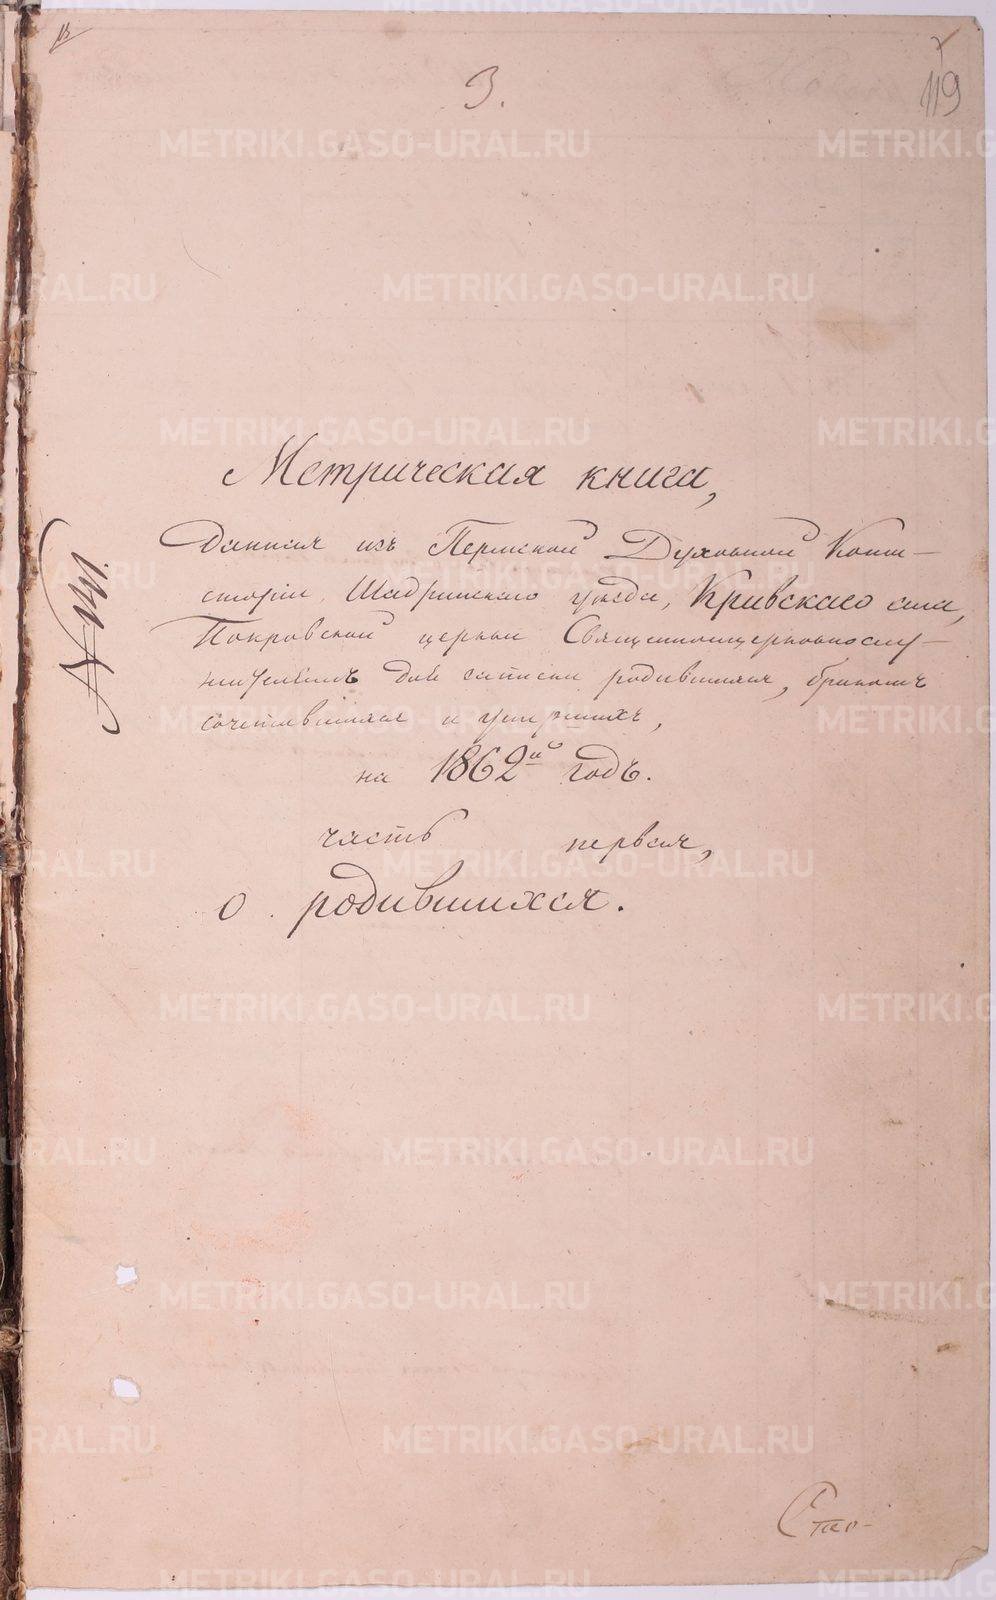 3.
119
Метрическая книга,
Данная изъ Пермской Духовной Конси-
сторіи, Шадринскаго уѣзда, Кривскаго села,
Покровской церкви Священноцерковнослу-
жителямъ для записки родившихся, бракомъ
сочетавшихся и умершихъ,
на 1862й годъ.
часть первая,
о родившихся.
METRIKI.GASO-URAL.RU